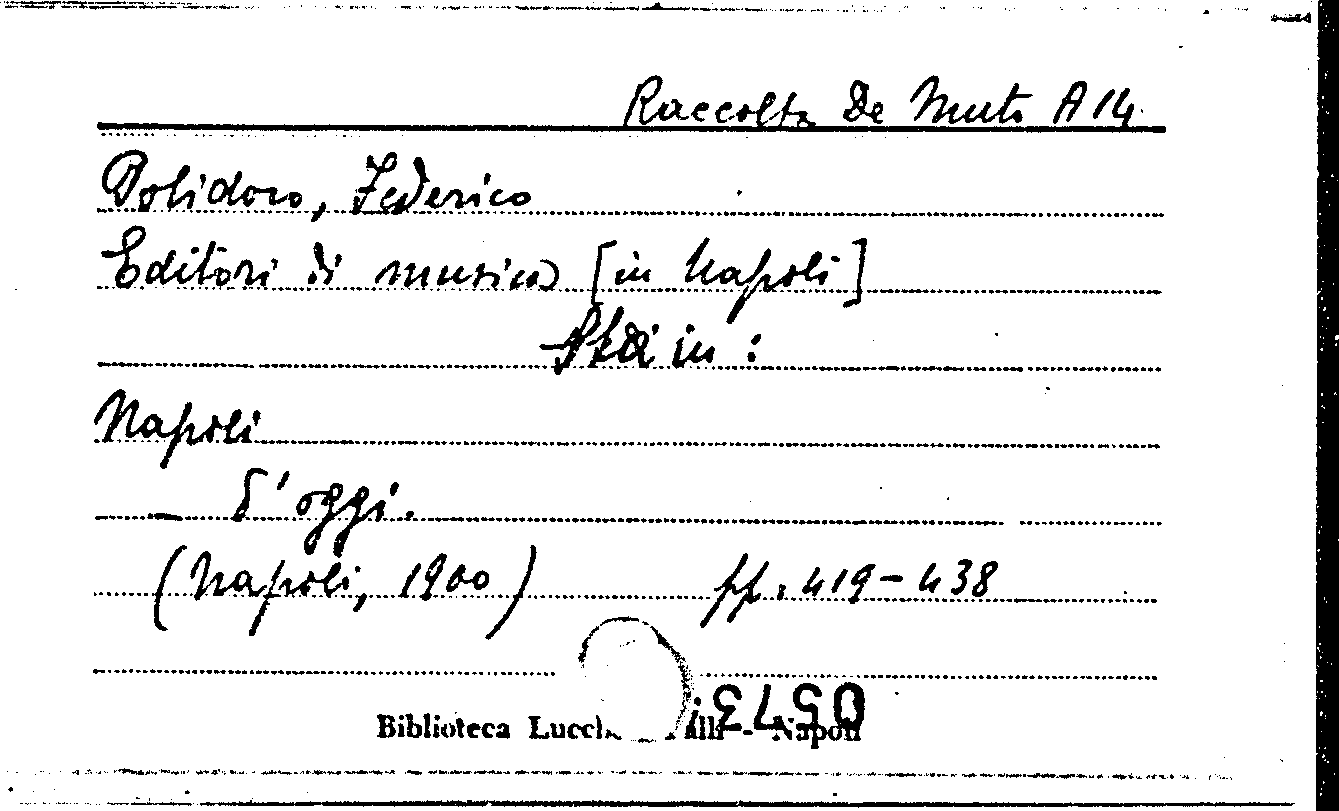 Raccolta De Muto A 14
Polidoro, Federico
Editori di musica [in Napoli]
Sta in:
Napoli
— d'oggi.
(Napoli, 1900) pp. 419-438
0573
Biblioteca - Napoli